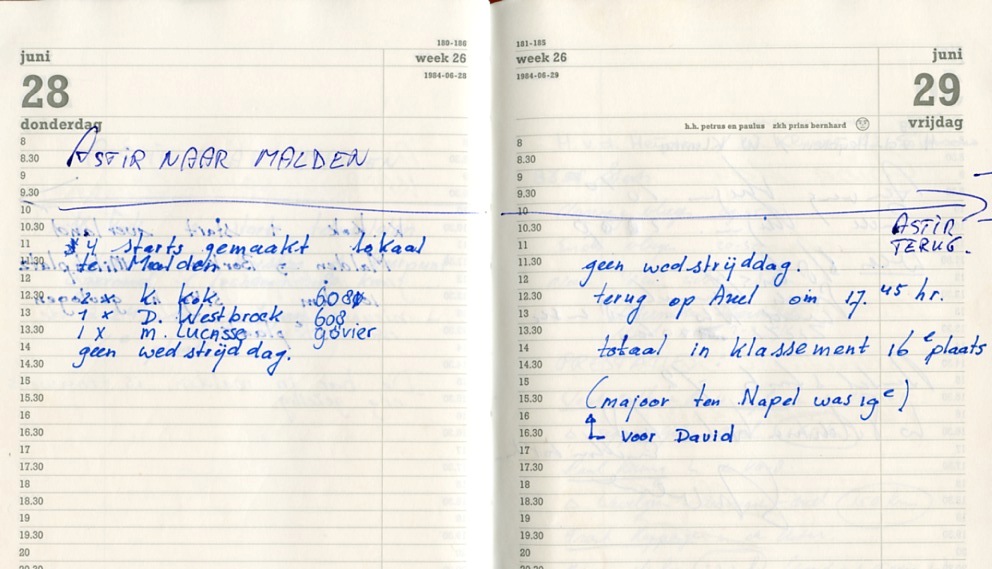 180-186
juni
week 26
28
1984-06-28
donderdag
8
ASTIR NAAR MALDEN
8.30
9
9.30
10
10.30
11
4 starts gemaakt lokaal
11.30
te Malden.
12
12.30
2 x K. Kok 608
13
1 x D. Westbroek 608
13.30
1 x m. Lucasse govier
14
geen wedstrijddag.
14.30
15
15.30
16
16.30
17
17.30
18
18.30
19
19.30
20
20.30
181-185
week 26
juni
1984-06-29
29
h.h. petrus en paulus zkh prins bernhard
vrijdag
8
8.30
9
9.30
10
10.30
ASTIR
11
TERUG.
11.30
geen wedstrijddag.
12
12.30
terug op Axel om 17.45 hr.
13
13.30
14
totaal in klassement 16e plaats
14.30
15
15.30
(majoor ten Napel was 19e)
16
16.30
voor David
17
17.30
18
18.30
19
19.30
20
20.30